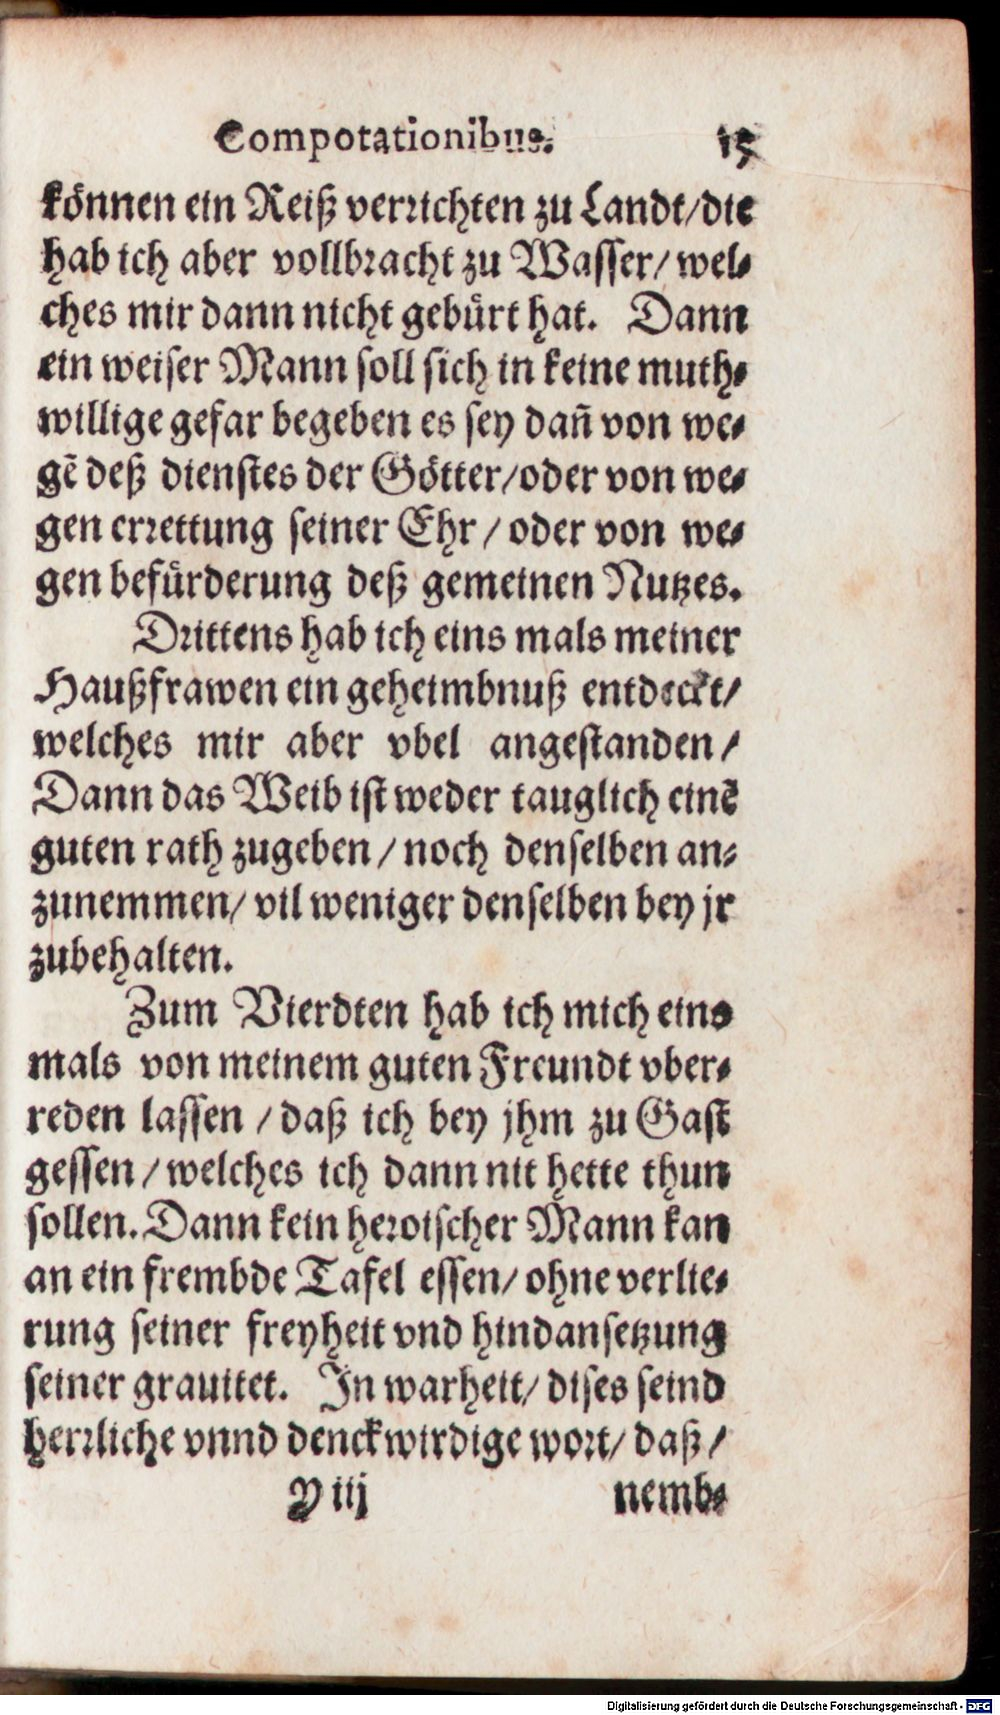 Compotationibus. 15
können ein Reiß verrichten zu Landt/die
hab ich aber vollbracht zu Wasser/ wel-
ches mir dann nicht gebürt hat. Dann
ein weiser Mann soll sich in keine muth-
willige gefar begeben es sey dañ von we-
gē deß dienstes der Götter/oder von we-
gen errettung seiner Ehr / oder von we-
gen befürderung deß gemeinen Nutzes.
Drittens hab ich eins mals meiner
Haußfrawen ein geheimbnuß entdeckt/
welches mir aber vbel angestanden/
Dann das Weib ist weder tauglich einē
guten rath zugeben / noch denselben an-
zunemmen/ vil weniger denselben bey jr
zubehalten.
Zum Vierdten hab ich mich eins
mals von meinem guten Freundt vber-
reden lassen / daß ich bey jhm zu Gast
gessen / welches ich dann nit hette thun
sollen. Dann kein heroischer Mann kan
an ein frembde Tafel essen/ ohne verlie-
rung seiner freyheit vnd hindansetzung
seiner grauitet. In warheit/ dises seind
herrliche vnnd denckwirdige wort/ daß /
Y iij nemb-
Digitalisierung gefördert durch die Deutsche Forschungsgemeinschaft - DFG